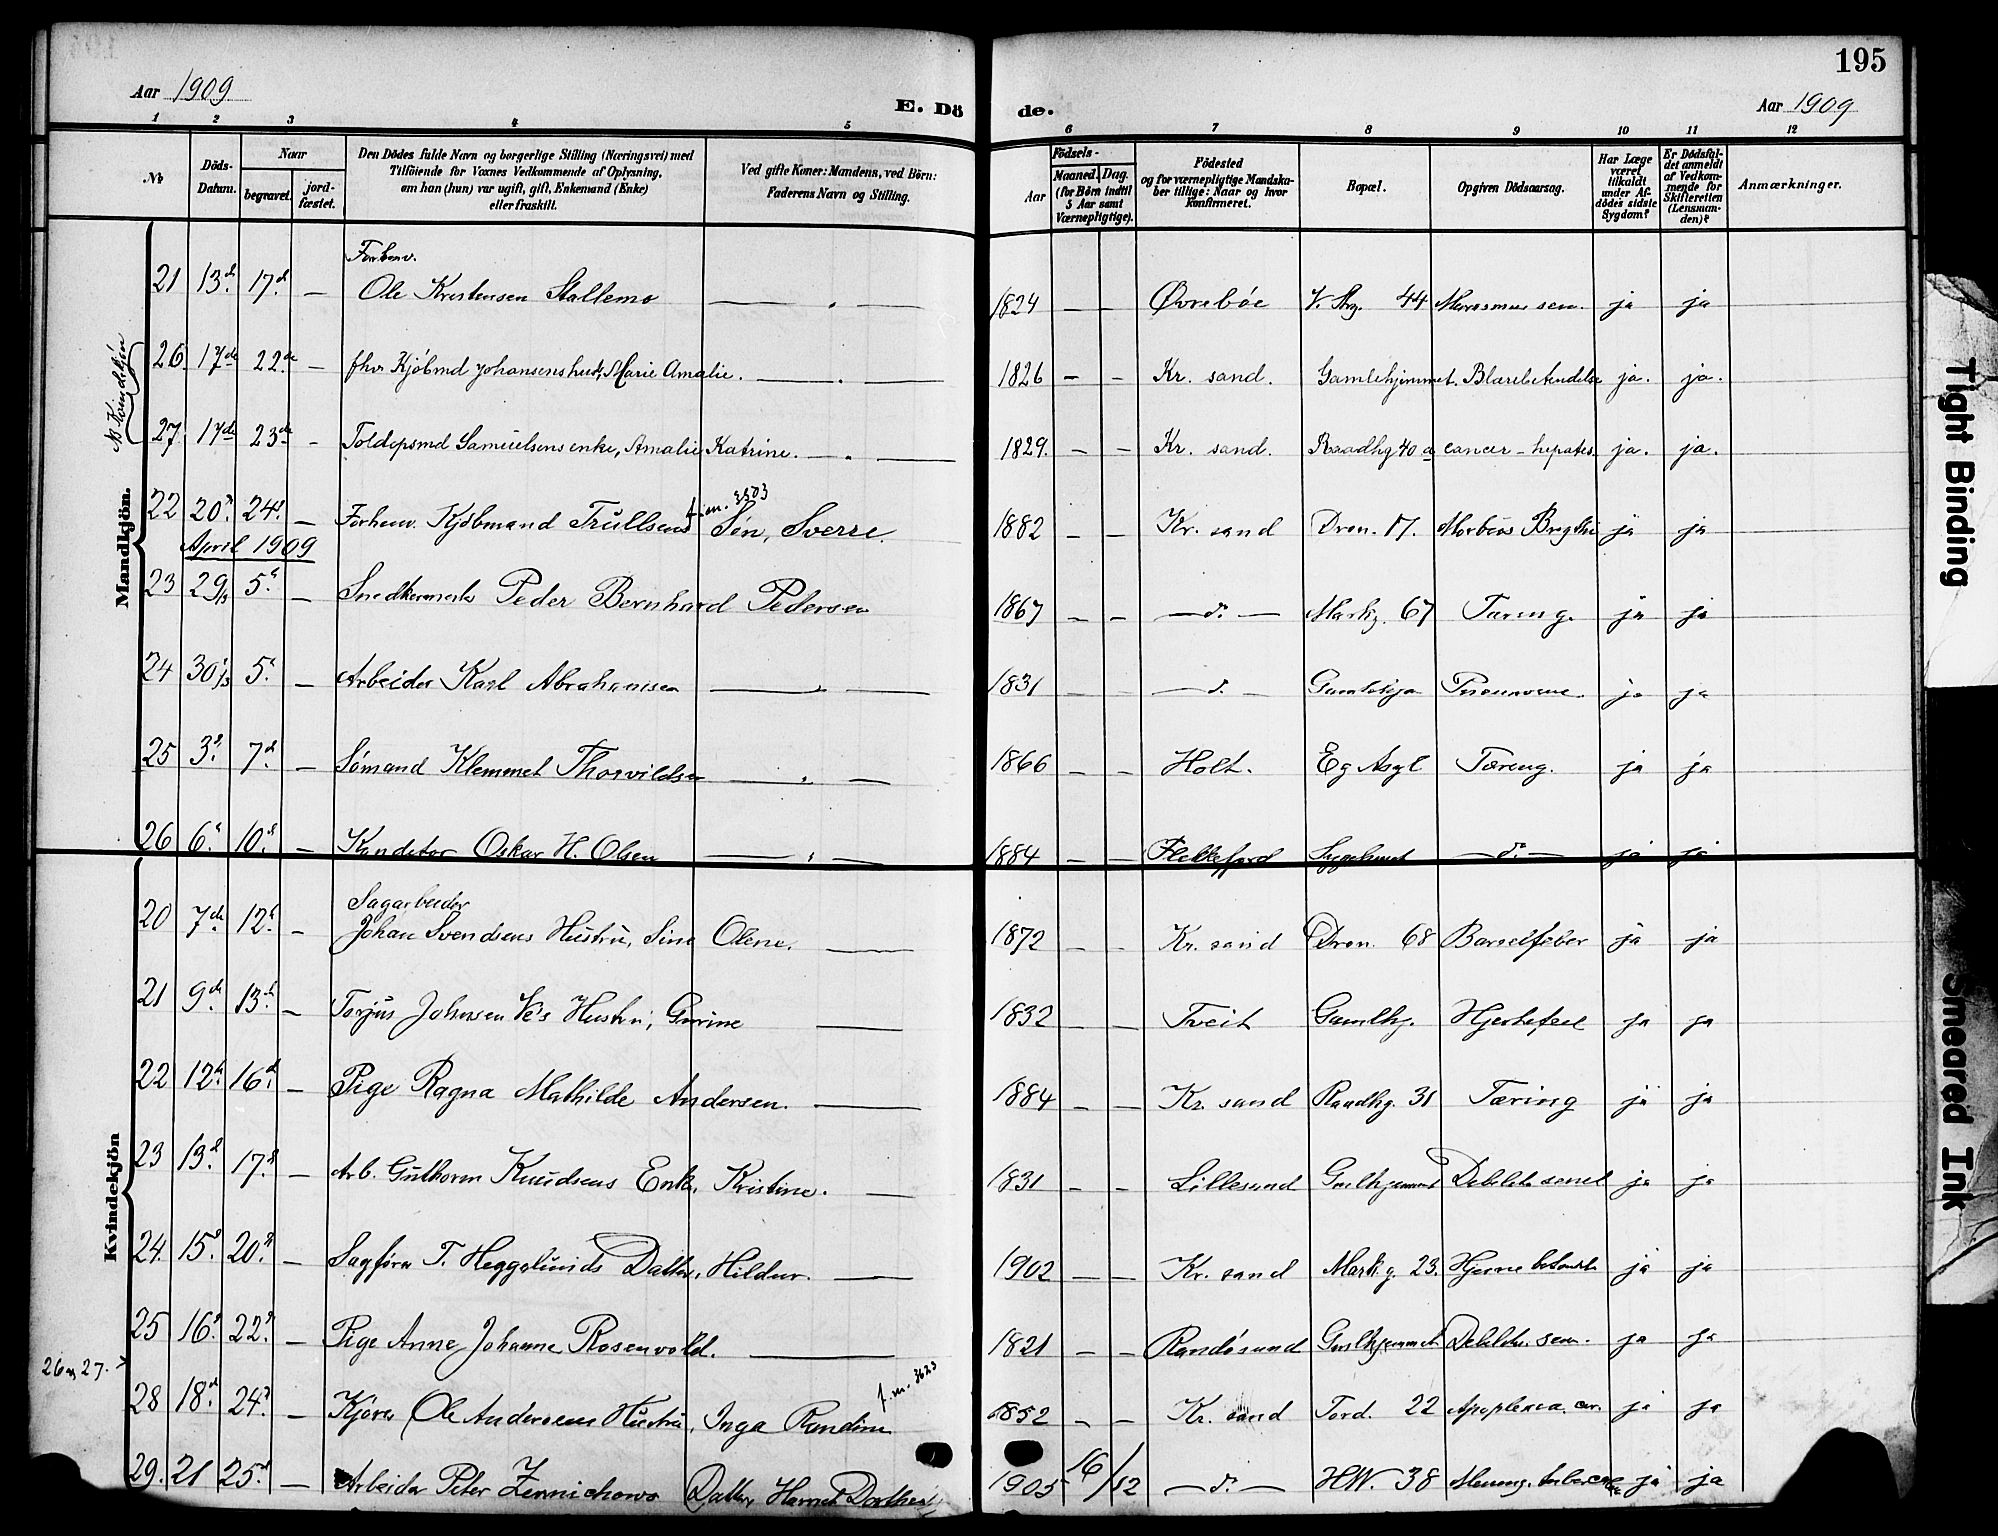 195
Aar 1909
E. Dö
de.
Aar 1909
1 2 3 4 5 6 7 8 9 10 11 12
No
Döds-Datum.
Naar
begravet.
jord-fæstet.
Den Dödes fulde Navn og borgerlige Stilling (Næringsvei) med
Tilföiende for Voxnes Vedkommende af Oplysning,
om han (hun) var ugift, gift, Enkemand (Enke)
eller fraskilt.
Ved gifte Koner: Mandens, ved Börn:
Faderens Navn og Stilling.
Födsels-
Aar
Maaned. Dag.
(for Börn indtil
5 Aar samt
Værnepligtige).
Födested
og for værnepligtige Mandska-
ber tillige: Naar og hvor
konfirmeret.
Bopæl.
Opgiven Dödsaarsag.
Har Læge
været
tilkaldt
under Af-
dödes sidste
Sygdom?
Er Dödsfal-
det anmeldt
af Vedkom-
mende for
Skifteretten
(Lensman-
den)?
Anmærkninger.
Mandkjön.
Forhenv.
21 13d. 17d. — Ole Kristensen Stallemo — " — 1824 — — Øvrebøe V. Strg. 44 Marasmus sen. ja ja
N.B. Kvindekjøn
26. 17de 22de — fhv Kjöbmd Johansens hust, Marie Amalie. — " — 1826 — — Kr. sand. Gamlehjemmet. ja. ja.
27. 17de 23de — Toldopsmd Samuelsens enke, Amalie Katrine. — " — 1829. — — Kr. sand. Raadhg 40 a cancer - hepates. ja. ja.
22 20d. 24d. — Forhenv. Kjöbmand Trullsens Søn, Sverre. 1882 — — Kr. sand Dron. 17. Morbus Brigthi ja ja
f.m. 3303
April 1909
23 29/3 5d. — Snedkermester Peder Bernhard Pedersen 1867 — — — do — Markg. 67 Tæring. ja ja
24 30/3 5d. — Arbeider Karl Abrahamsen — " — 1831 — — — do — Gamlehje ja ja
25 3d. 7d. — Sømand Klemmet Thorvildsen — " — 1866 — — Holt. Eg Asyl Tæring. ja ja
26 6d. 10d. — Konditor Oskar H. Olsen — " — 1884 — — Flekkefjord Sygehuset — do — ja ja
Kvindekjön
Sagarbeider
20 7de 12d. — Johan Svendsens Hustru, Sine Olene. — 1872 — — Kr. sand Dron. 68 Barselfeber ja ja
21 9de 13d. — Torjus Johnsen Ve's Hustru, Gurine — 1832 — — Tveit Gamlhj. Hjertefeil ja ja
22 12d. 16d. — Pige Ragna Mathilde Andersen. — 1884 — — Kr. sand Raadhg. 31 Tæring ja ja
23 13d. 17d. — Arb. Guthorm Knudsens Enke, Kristine. — 1831 — — Lillesand Gamlhjemmet Debilitas senil ja ja
24. 15d. 20d. — Sagfører T. Heggelunds Datter, Hildur. — 1902 — — Kr. sand Markg. 23. Hjerne betændelse ja ja
25 16d. 22d. — Pige Anne Johanne Rosenvold. — 1821 — — Randøsund Gamlhjemmet Debilitas sen. ja ja
26 og 27. >
28 18d. 24d. — Kjører Ole Andersens Hustru, Inga Randine 1852 — — Kr. sand Tord. 22 Apoplexia. cer. ja ja
f.m. 3623
29. 21 25d. — Arbeider Peter Zernichows Datter Harriet Dorthea 1905 16/12 — do — HW. 38 Mening. tubercul. ja ja
Tight Binding
Smeared Ink